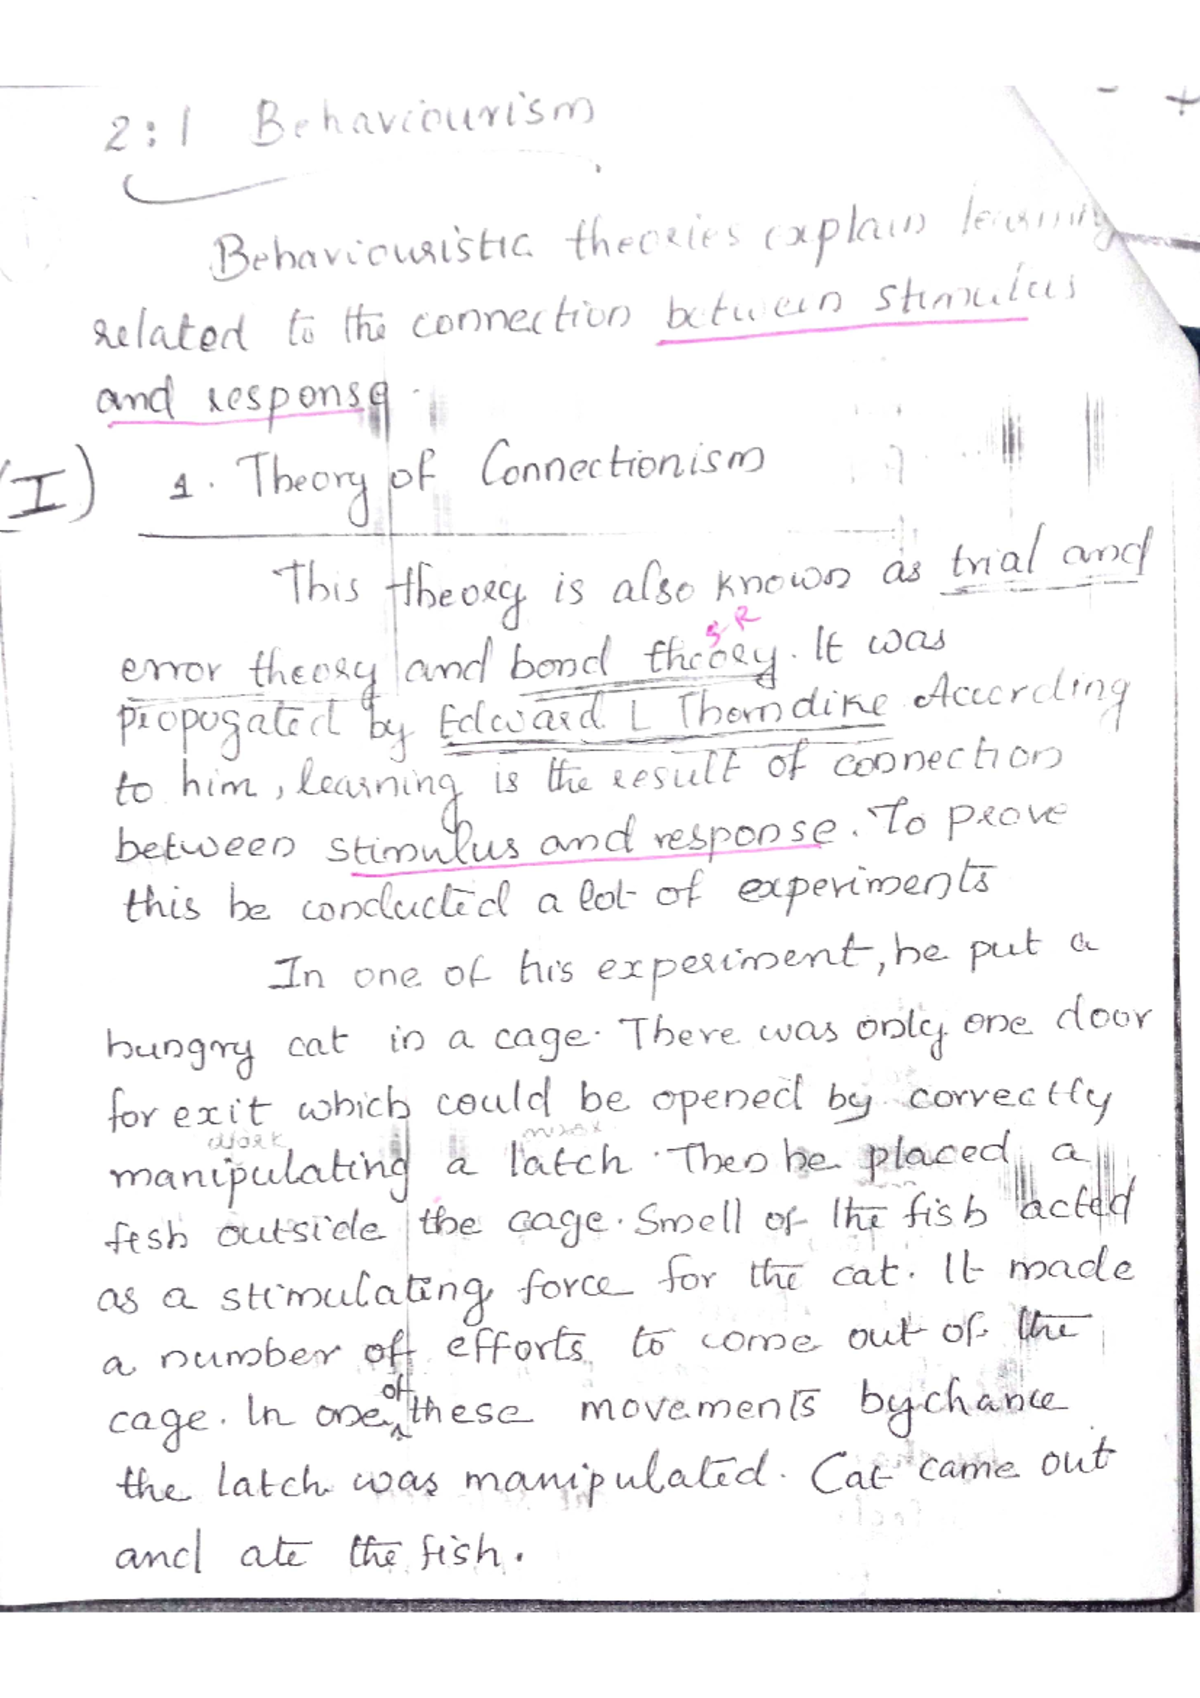 2:1 Behaviourism
Behaviouristic theories explain learning
related to the connection between stimulus
and response.
(I) 1. Theory of Connectionism
This theory is also known as trial and
S-R
error theory and bond theory. It was
propogated by Edward L Thorndike According
to him, learning is the result of connection
between stimulus and response. To prove
this he conducted a lot of experiments
In one of his experiment, he put a
hungry cat in a cage. There was only one door
for exit which could be opened by correctly
manipulating a latch. Then he placed a
fish outside the cage. Smell of the fish acted
as a stimulating force for the cat. It made
a number of efforts to come out of the
cage. In one of these movements by chance
the latch was manipulated. Cat came out
and ate the fish.